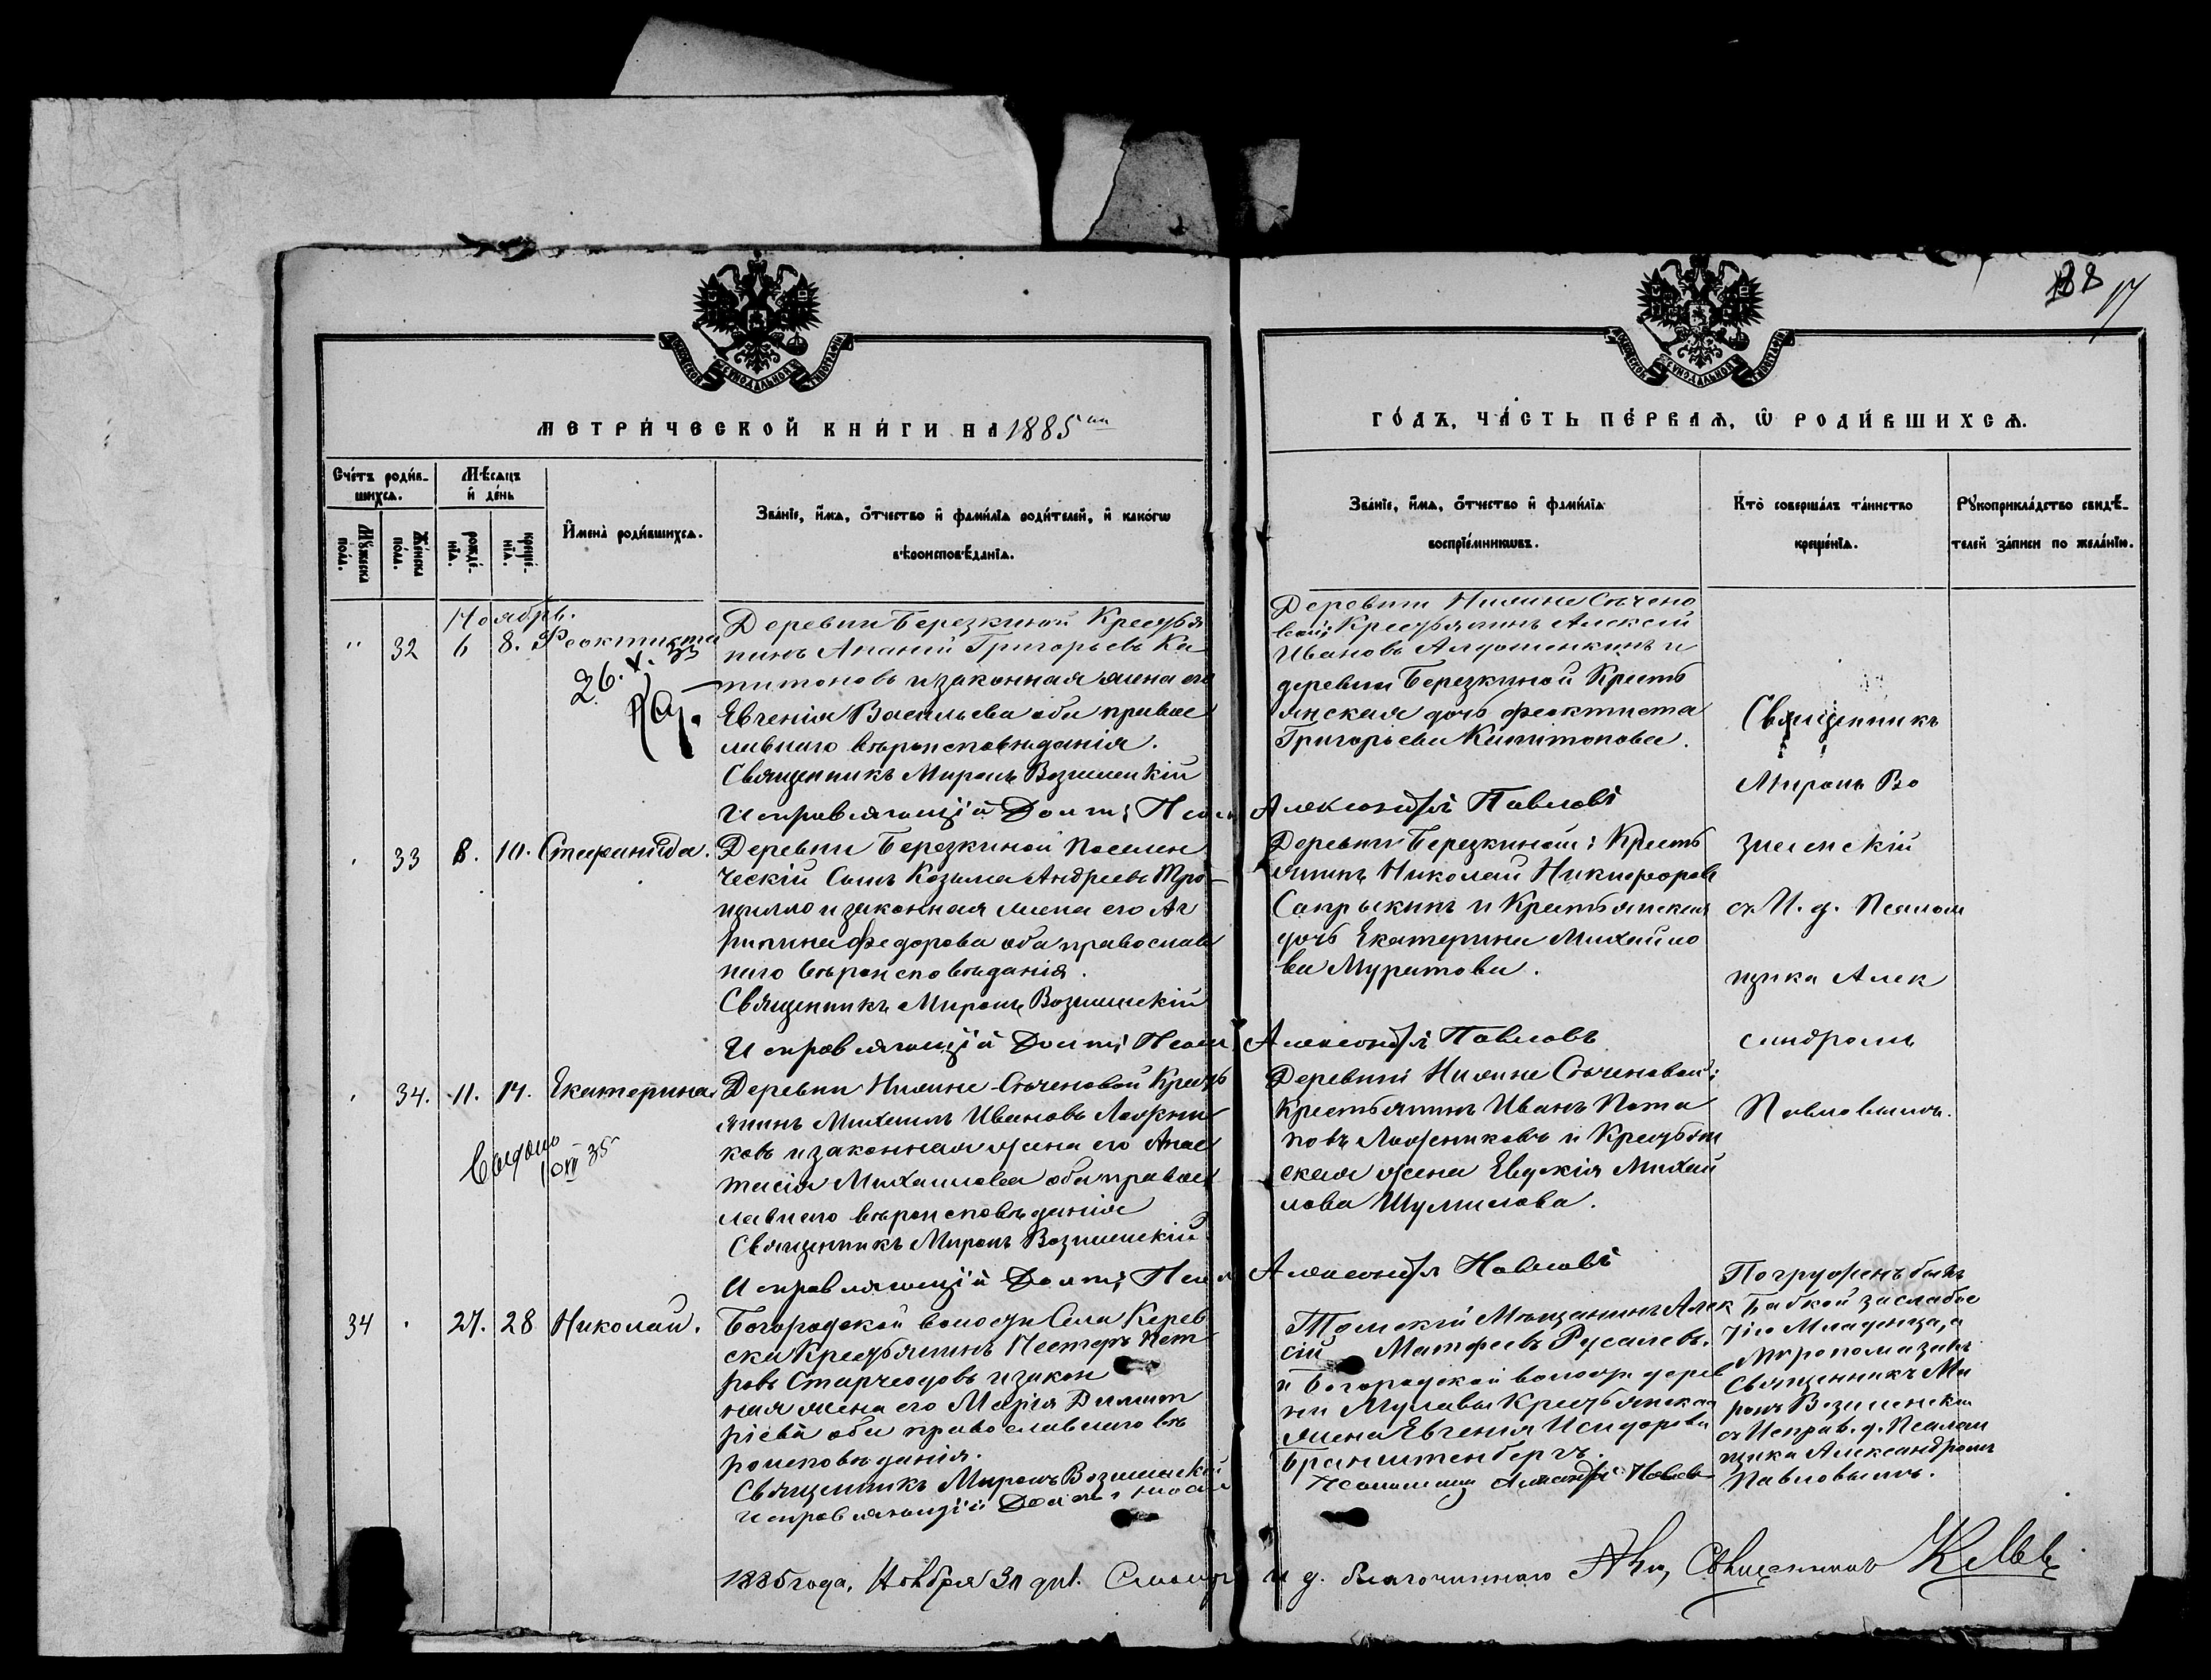 188 17
МЕТРИЧЕСКОЙ КНИГИ НА 1885 ый
ГОДЪ, ЧАСТЬ ПЕРВАЯ, Ѡ РОДИВШИХСЯ.
Счетъ родив-
шихся.
Мѣсяцъ
и день
Мужеска
полъ.
Женска
полъ.
рожде-
нія.
креще-
нія.
Имена родившихся.
Званіе, имя, отчество и фамилія родителей, и какогѡ
вѣроисповѣданія.
Званіе, имя, отчество и фамилія
воспріемниковъ.
Кто совершалъ таинство
крещенія.
Рукоприкладство свидѣ-
телей записи по желанію.
Ноябрь.
" 32 6 8. Феоктиста
26. V. 35
Деревни Березкиной Крестья
нинъ Ананій Григорьевъ Ка
питоновъ и законная жена его
Евгенія Васильева оба правос
лавнаго вѣроисповѣданія.
Священникъ Миронъ Вознесенскій
Исправляющій Долж; Псал Александръ Павловъ
Деревни Нижне Сѣчено
вой; Крестьянинъ Алексій
Ивановъ Алдошенкинъ и
деревни Березкиной Кресть
янская дочь Феоктиста
Григорьева Капитонова.
Священникъ
Миронъ Во
знесенскій
съ И. д. Псалом
щика Алек
сандромъ
Павловымъ.
33 8. 10. Стефанида.
Деревни Березкиной Поселен
ческій Сынъ Козьма Андреевъ Тро-
цилло и законная жена его Аг
рипина Федорова оба православ
наго вѣроисповѣданія.
Священникъ Миронъ Вознесенскій
Исправляющій Долж; Псал Александръ Павловъ
Деревни Березкиной; Кресть
янинъ Николай Никифоровъ
Сапрыкинъ и Крестьянская
дочь Екатерина Михайло
ва Муратова.
34. 11. 14. Екатерина.
Выдано
10 VII 35
Деревни Нижне-Сѣченовой Кресть
янинъ Михаилъ Ивановъ Ложни
ковъ и законная жена его Анас
тасія Михаилова оба правос
лавнаго вѣроисповѣданія
Священникъ Миронъ Вознесенскій
Исправляющій Долж; Псал Александръ Павловъ
Деревни Нижне Сѣченовой;
Крестьянинъ Иванъ Пота
повъ Ложниковъ и Крестьян
ская жена Евдокія Михай
лова Шумилова.
34 27. 28 Николай.
Богородской волости Села Керев
ска Крестьянинъ Несторъ Пет
ровъ Старчеодовъ и закон
ная жена его Марія Димит
ріева оба православнаго вѣ
роисповѣданія.
Священникъ Миронъ Вознесенскій
Исправляющій Долж; псал
Томскій Мѣщанинъ Алек
сій Матфеевъ Русалевъ.
и Богородской волости дерев
ни Мулавы Крестьянская
жена Евгенія Исидорова
Бранштенбергъ.
Псаломщ Александръ Павловъ
Погруженъ былъ
Бабкой за слабос
тію Младенца, а
Миропомазанъ
Священникъ Ми
ронъ Вознесенскій
съ Исправ. д. Псалом
щика Александромъ
Павловымъ.
1885 года, Ноября 30 дня. Смотр и д. благочиннаго Священникъ